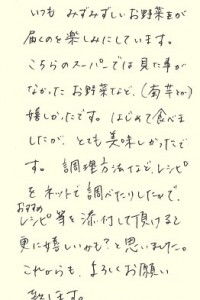 いつも みずみずしいお野菜をが
届くのを楽しみにしています。
こちらのスーパーでは見た事が
なかったお野菜など、(菊芋とか)
嬉しかったです。はじめて食べま
したが、とても美味しかったで
す。調理方法など、レシピ
をネットで調べたりしたので、
おすすめ
レシピ等を添付して頂けると
更に嬉しいかも?と思いました。
これからも、よろしくお願い
致します。